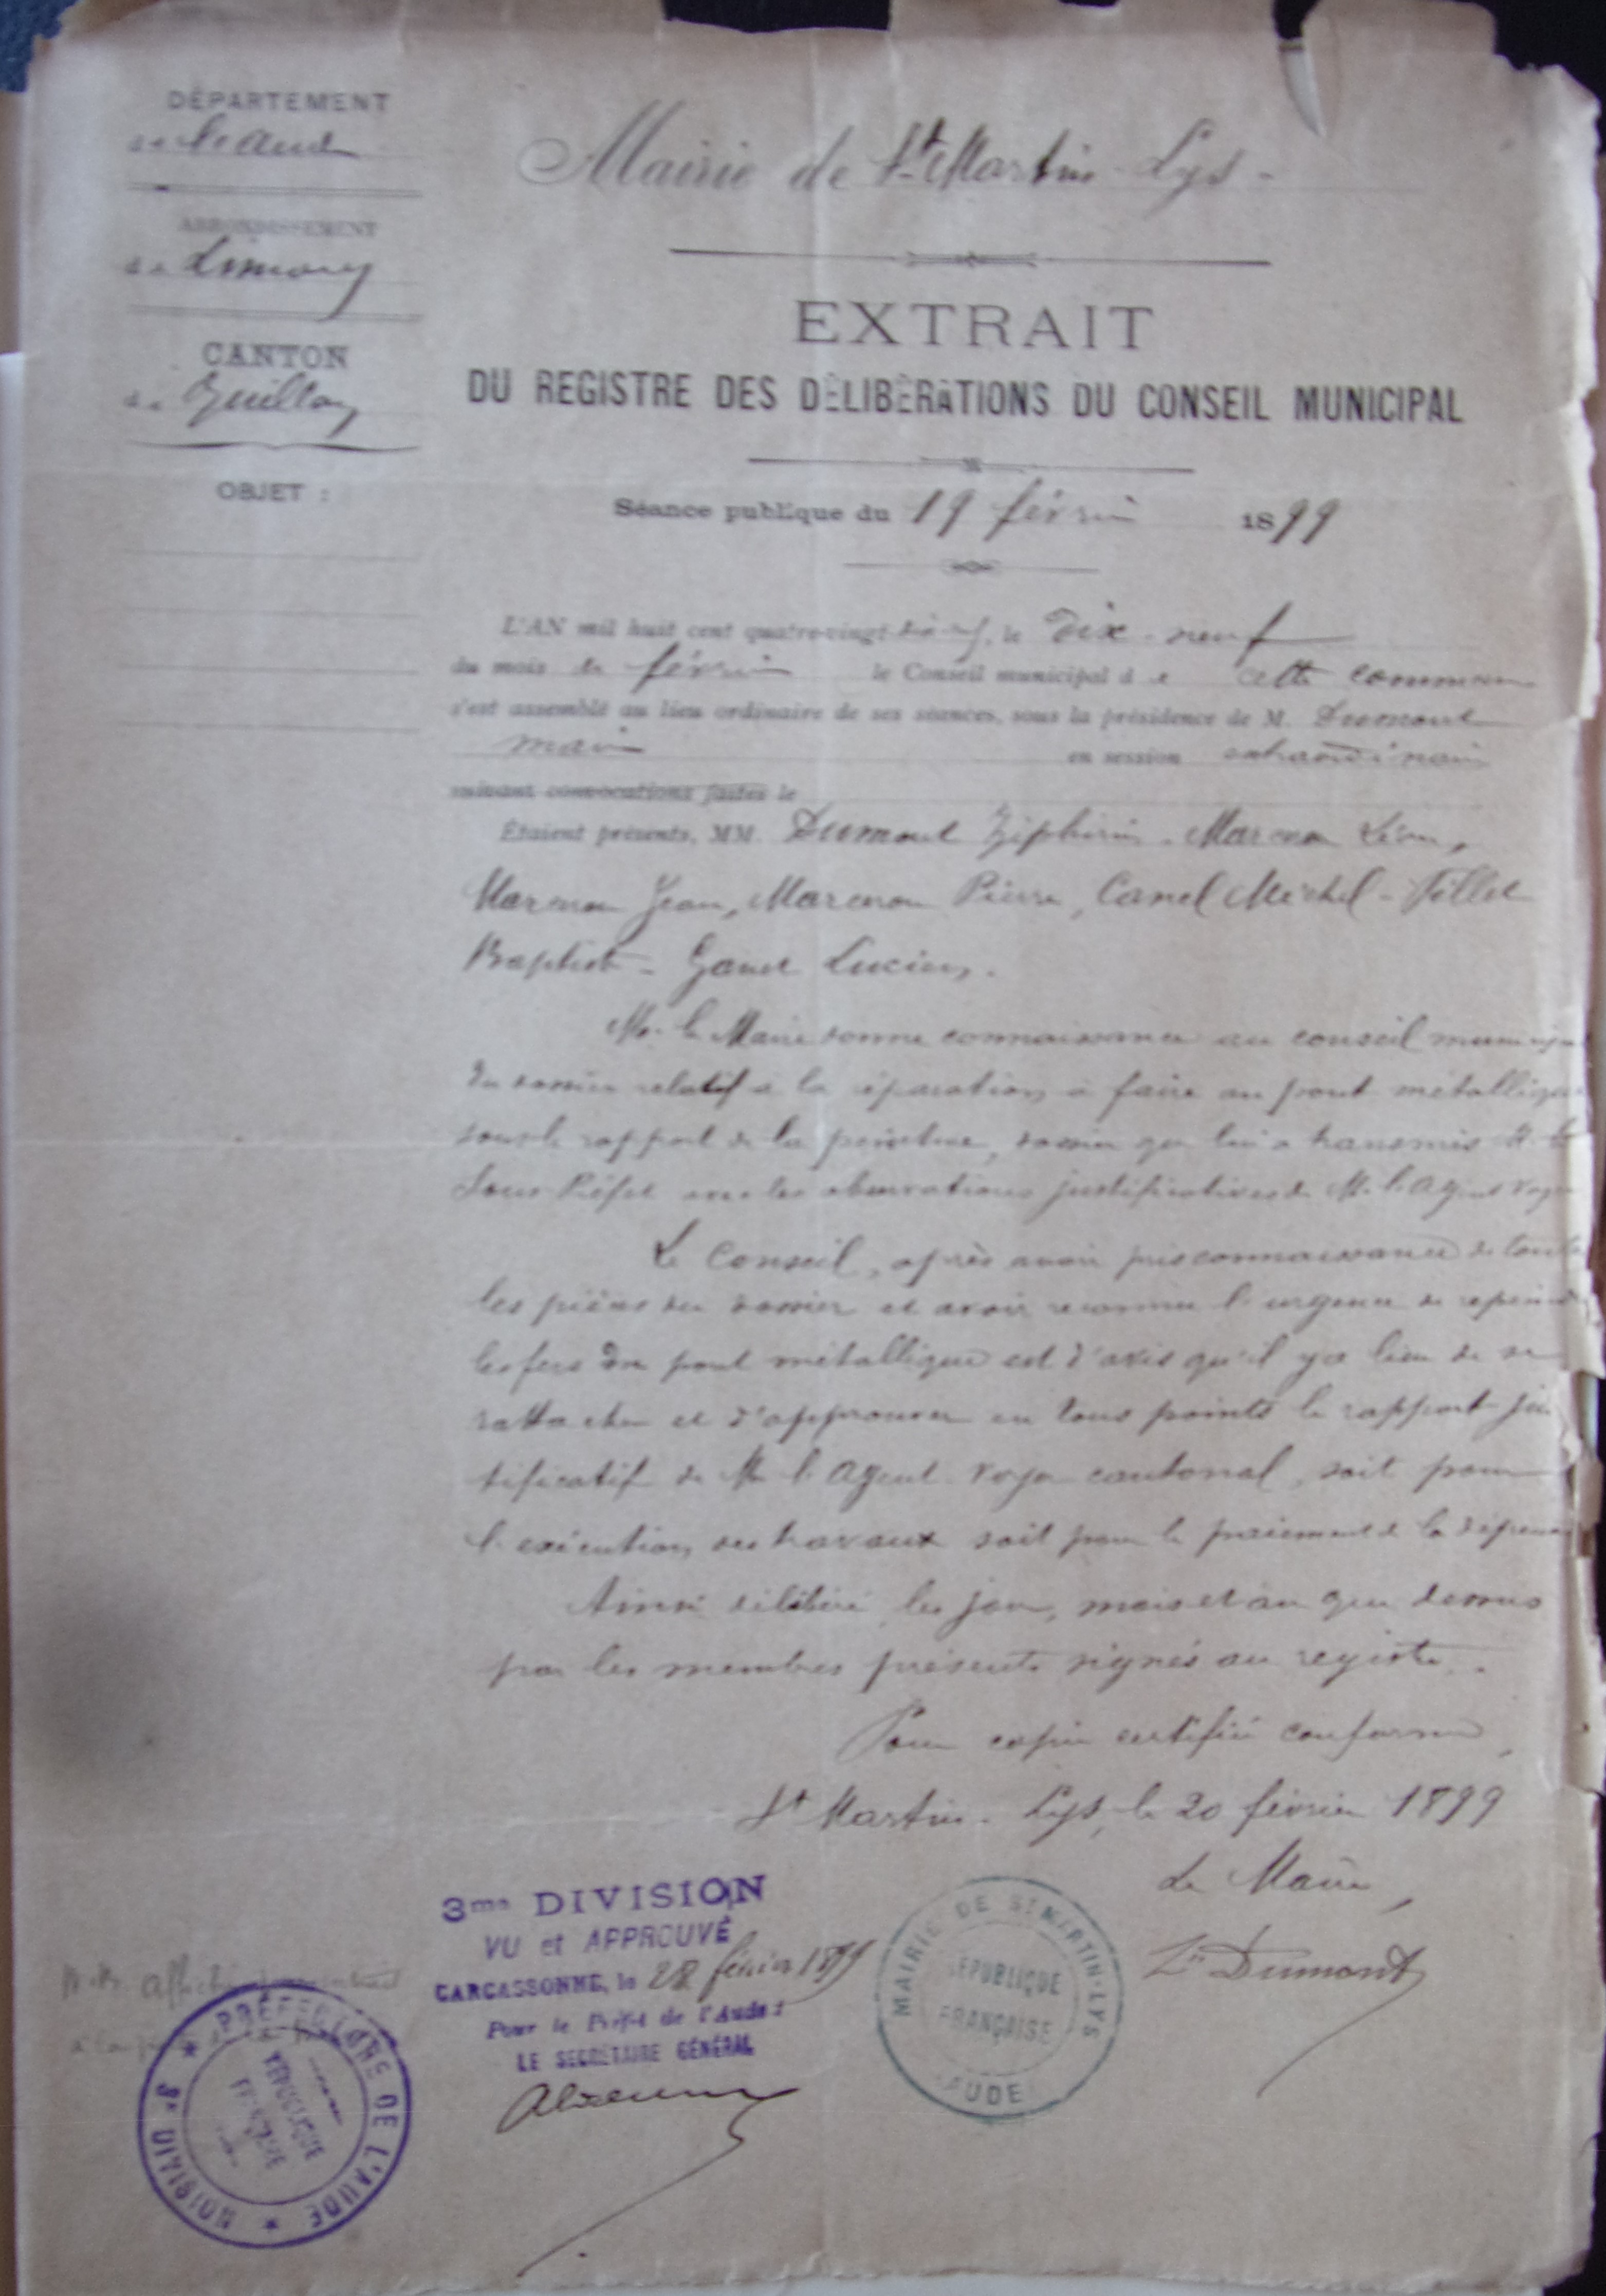 DÉPARTEMENT
de l'Aude
ARRONDISSEMENT
de Limoux
CANTON
de Quillan
OBJET :
Mairie de St Martin-Lys -
EXTRAIT
DU REGISTRE DES DÉLIBÉRATIONS DU CONSEIL MUNICIPAL
Séance publique du 19 février 1899
L'AN mil huit cent quatre-vingt dix-neuf, le Dix-neuf
du mois de février le Conseil municipal de cette commune
s'est assemblé au lieu ordinaire de ses séances, sous la présidence de M. Dumont
maire en session extraordinaire
suivant convocations faites le
Étaient présents, MM. Dumont Zéphirin - Léon,
Jean, Pierre, Canel Michel -
Baptiste - Lucien.
Mr le Maire donne connaissance au conseil municipal
du dossier relatif à la réparation à faire au pont métallique
sous le rapport de la peinture, dossier que lui a transmis M. le
Sous-Préfet avec les observations justificatives de M. l'Agent voyer
Le Conseil, après avoir pris connaissance de toutes
les pièces du dossier et avoir reconnu l'urgence de repeindre
les fers du pont métallique est d'avis qu'il y a lieu de se
rattacher et d'approuver en tous points le rapport jus
tificatif de Mr l'Agent-voyer cantonal, soit pour
l'exécution des travaux soit pour le paiement de la dépense
Ainsi délibéré, les jour, mois et an que dessus
par les membres présents signés au registre.
Pour copie certifiée conforme,
St Martin-Lys, le 20 février 1899
Le Maire,
Zin Dumont
3me DIVISION
VU et APPROUVÉ
CARCASSONNE, le 28 février 1899
Pour le Préfet de l'Aude :
LE SECRÉTAIRE GÉNÉRAL
MAIRIE DE ST MARTIN-LYS
RÉPUBLIQUE
FRANÇAISE
AUDE
PRÉFECTURE DE L'AUDE
RÉPUBLIQUE
FRANÇAISE
3e DIVISION